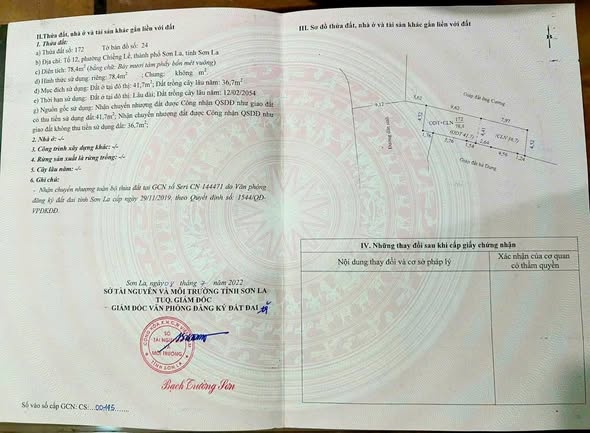 II. Thửa đất, nhà ở và tài sản khác gắn liền với đất
1. Thửa đất:
a) Thửa đất số: 172 Tờ bản đồ số: 24
b) Địa chỉ: Tổ 12, phường Chiềng Lề, thành phố Sơn La, tỉnh Sơn La
c) Diện tích: 78,4m² (bằng chữ: Bảy mươi tám phẩy bốn mét vuông)
d) Hình thức sử dụng: riêng: 78,4m² ; Chung: không m².
đ) Mục đích sử dụng: Đất ở tại đô thị: 41,7m²; Đất trồng cây lâu năm: 36,7m²
e) Thời hạn sử dụng: Đất ở tại đô thị: Lâu dài; Đất trồng cây lâu năm: 12/02/2054
g) Nguồn gốc sử dụng: Nhận chuyển nhượng đất được Công nhận QSDĐ như giao đất
có thu tiền sử dụng đất 41,7m²; Nhận chuyển nhượng đất được Công nhận QSDĐ như
giao đất không thu tiền sử dụng đất: 36,7m²;
2. Nhà ở: -/-
3. Công trình xây dựng khác: -/-
4. Rừng sản xuất là rừng trồng: -/-
5. Cây lâu năm: -/-
6. Ghi chú:
- Nhận chuyển nhượng toàn bộ thửa đất tại GCN số Seri CN 144471 do Văn phòng
đăng ký đất đai tỉnh Sơn La cấp ngày 29/11/2019, theo Quyết định số: 1544/QĐ-
VPĐKĐĐ.
Sơn La, ngày 04 tháng 7 năm 2022
SỞ TÀI NGUYÊN VÀ MÔI TRƯỜNG TỈNH SƠN LA
TUQ. GIÁM ĐỐC
GIÁM ĐỐC VĂN PHÒNG ĐĂNG KÝ ĐẤT ĐAI
SỞ
TÀI NGUYÊN
VÀ
MÔI TRƯỜNG
TỈNH SƠN LA
Bạch Trường Sơn
Số vào sổ cấp GCN: CS:
III. Sơ đồ thửa đất, nhà ở và tài sản khác gắn liền với đất
B
Giáp đất ông Cường
Đường dân sinh
4,12
3,02
9,62
7,91
4,52
ODT+CLN
172
78,4
4,41
(CLN 36,7)
4,52
(ODT 41,7)
1,76
5,26
1,24
2,64
4,56
1,24
Giáp đất bà Dung
IV. Những thay đổi sau khi cấp giấy chứng nhận
Nội dung thay đổi và cơ sở pháp lý
Xác nhận của cơ quan
có thẩm quyền